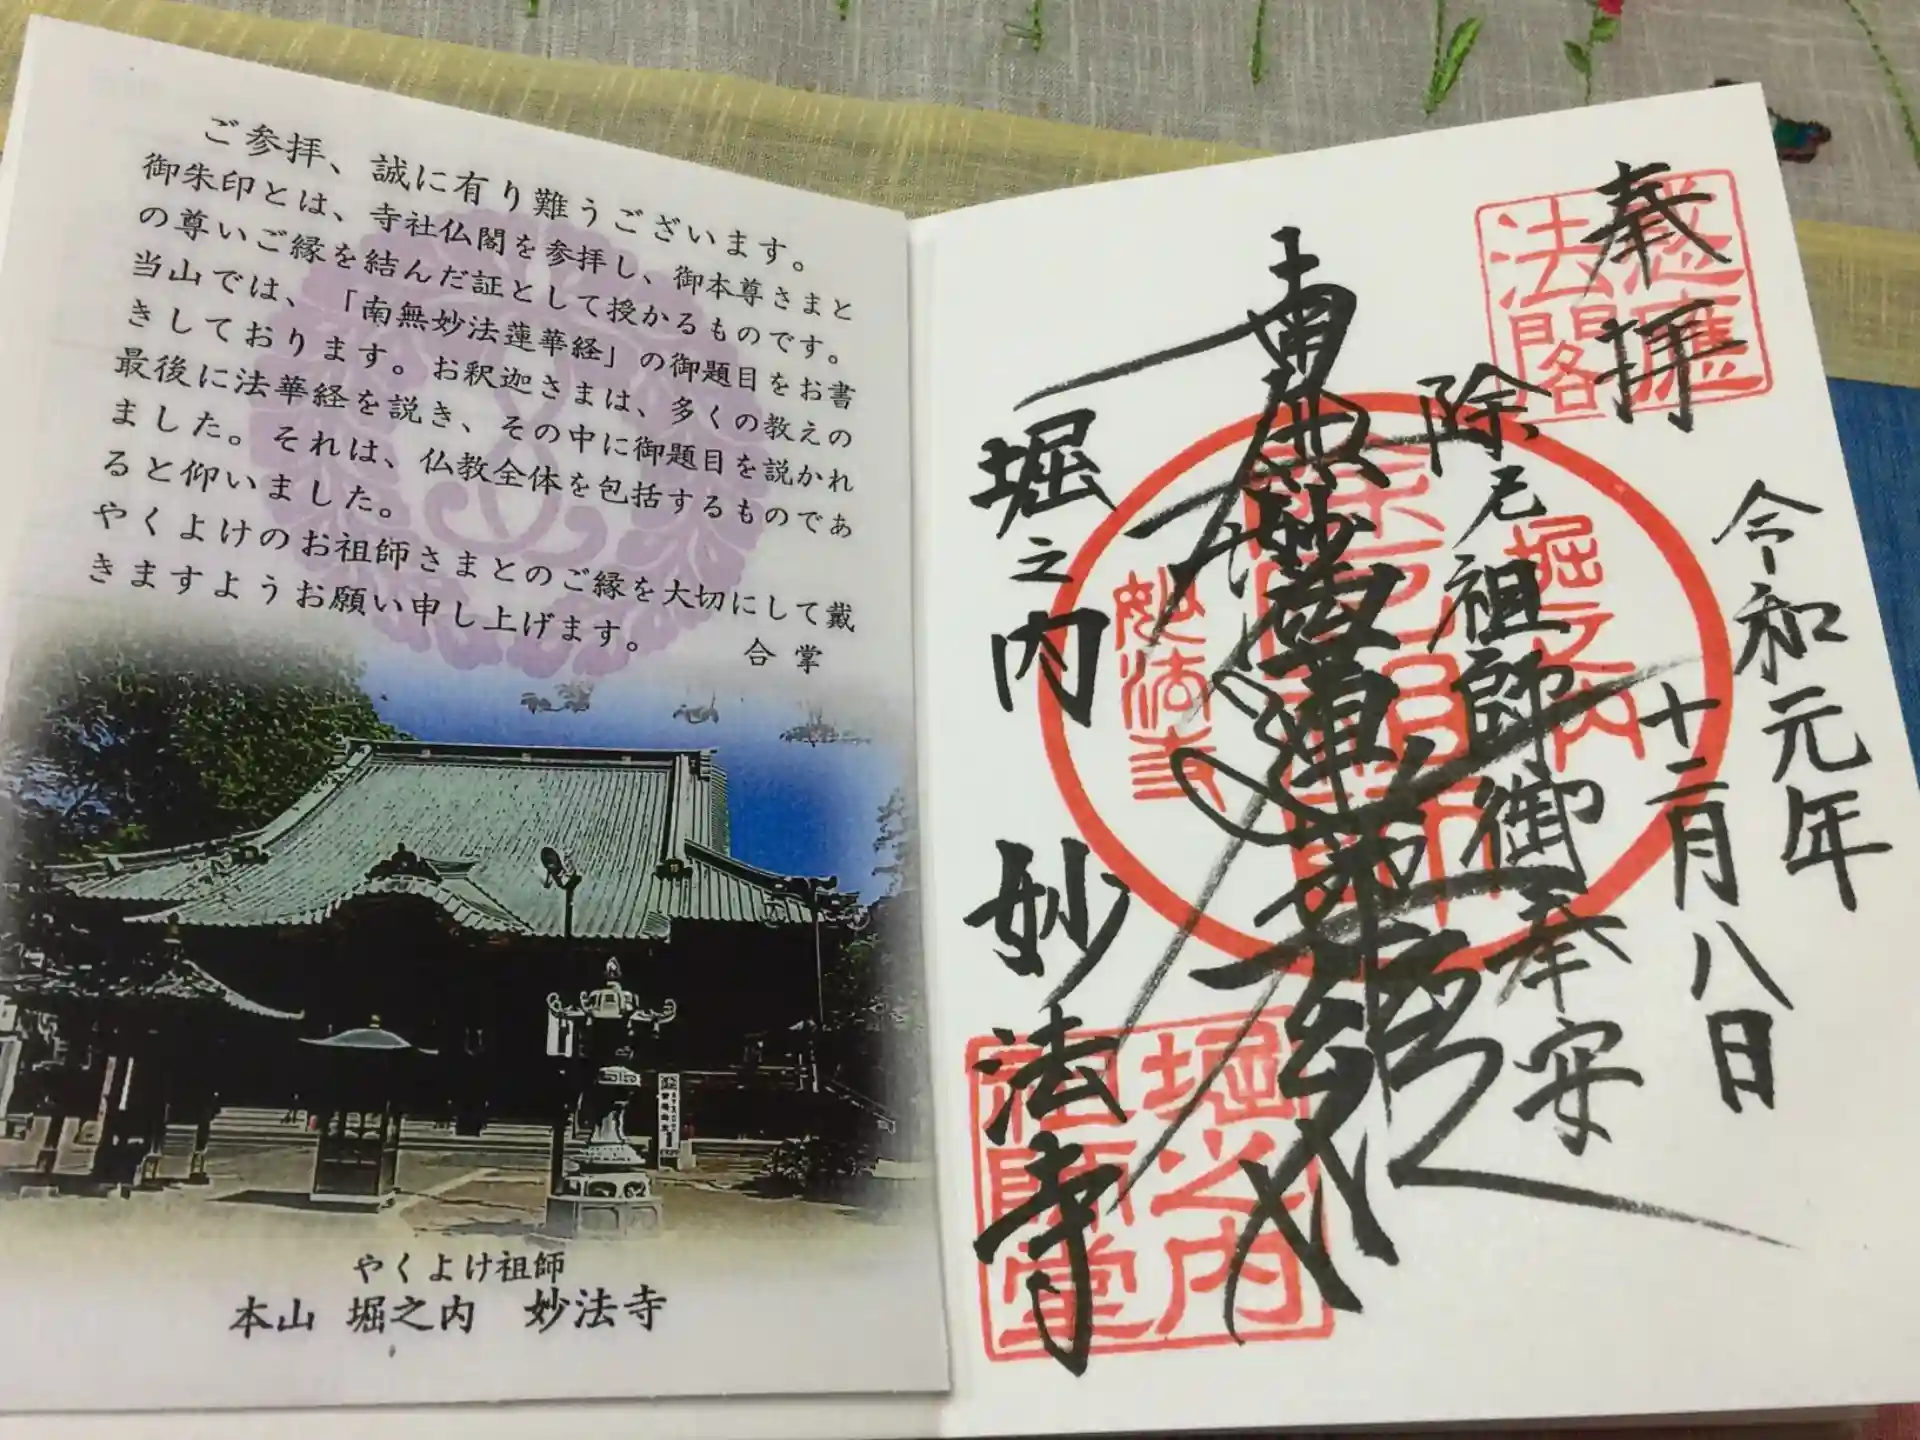 ご参拝、誠に有り難うございます。
御朱印とは、寺社仏閣を参拝し、御本尊さまと
の尊いご縁を結んだ証として授かるものです。
当山では、「南無妙法蓮華経」の御題目をお書
きしております。お釈迦さまは、多くの教えの
最後に法華経を説き、その中に御題目を説かれ
ました。それは、仏教全体を包括するものであ
ると仰いました。
やくよけのお祖師さまとのご縁を大切にして戴
きますようお願い申し上げます。
合掌
やくよけ祖師
本山 堀之内 妙法寺
奉拝
令和元年
十二月八日
除厄祖師御奉安
南無妙法蓮華経
堀之内 妙法寺
法閣
堀之内
妙法寺
堀之内
祖師堂